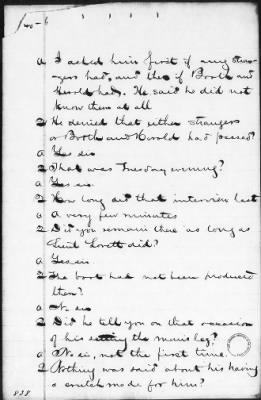 A I asked him first if any stran-
gers had, and then if Booth and
Herold had. He said he did not
know them at all
Q He denied that either strangers
or Booth and Herold had passed?
A Yes sir
Q That was Tuesday evening?
A Yes sir.
Q How long did that interview last
A A very few minutes
Q Did you remain there as long as
Lieut Lovett did?
A Yes sir
Q The boot had not been produced
then?
A No sir
Q Did he tell you on that occasion
of his setting the man's leg?
A No sir, not the first time.
Q Nothing was said about his having
a crutch made for him?
828